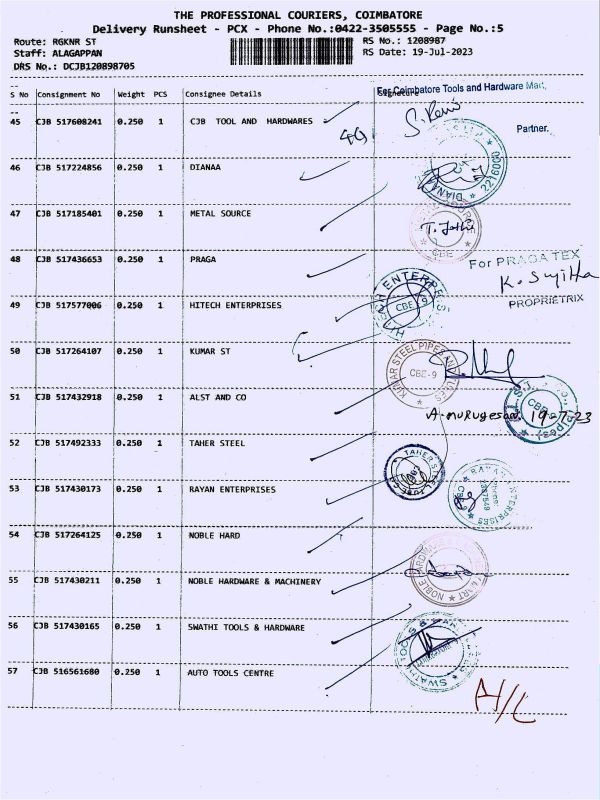 THE PROFESSIONAL COURIERS, COIMBATORE
Delivery Runsheet - PCX - Phone No.:0422-3505555 - Page No.:5
Route: RGKNR ST RS No.: 1208987
Staff: ALAGAPPAN RS Date: 19-Jul-2023
DRS No.: DCJB120898705
S No Consignment No Weight PCS Consignee Details Signature
For Coimbatore Tools and Hardware Mart,
45 CJB 517608241 0.250 1 CJB TOOL AND HARDWARES
Partner.
46 CJB 517224856 0.250 1 DIANAA
DIANAA 2216000
47 CJB 517185401 0.250 1 METAL SOURCE
CBE
48 CJB 517436653 0.250 1 PRAGA
For PRAGA TEX
K. Sujitha
PROPRIETRIX
49 CJB 517577006 0.250 1 HITECH ENTERPRISES
CBE-9
50 CJB 517264107 0.250 1 KUMAR ST
KUMAR STEEL PIPES AND TUBES
CBE-9
51 CJB 517432918 0.250 1 ALST AND CO
A. murugesan 19-7-23
52 CJB 517492333 0.250 1 TAHER STEEL
TAHER STEEL
53 CJB 517430173 0.250 1 RAYAN ENTERPRISES
RAYAN ENTERPRISES
54 CJB 517264125 0.250 1 NOBLE HARD
55 CJB 517430211 0.250 1 NOBLE HARDWARE & MACHINERY
NOBLE HARDWARE MART
56 CJB 517430165 0.250 1 SWATHI TOOLS & HARDWARE
SWATHI TOOLS & HARDWARE
57 CJB 516561680 0.250 1 AUTO TOOLS CENTRE